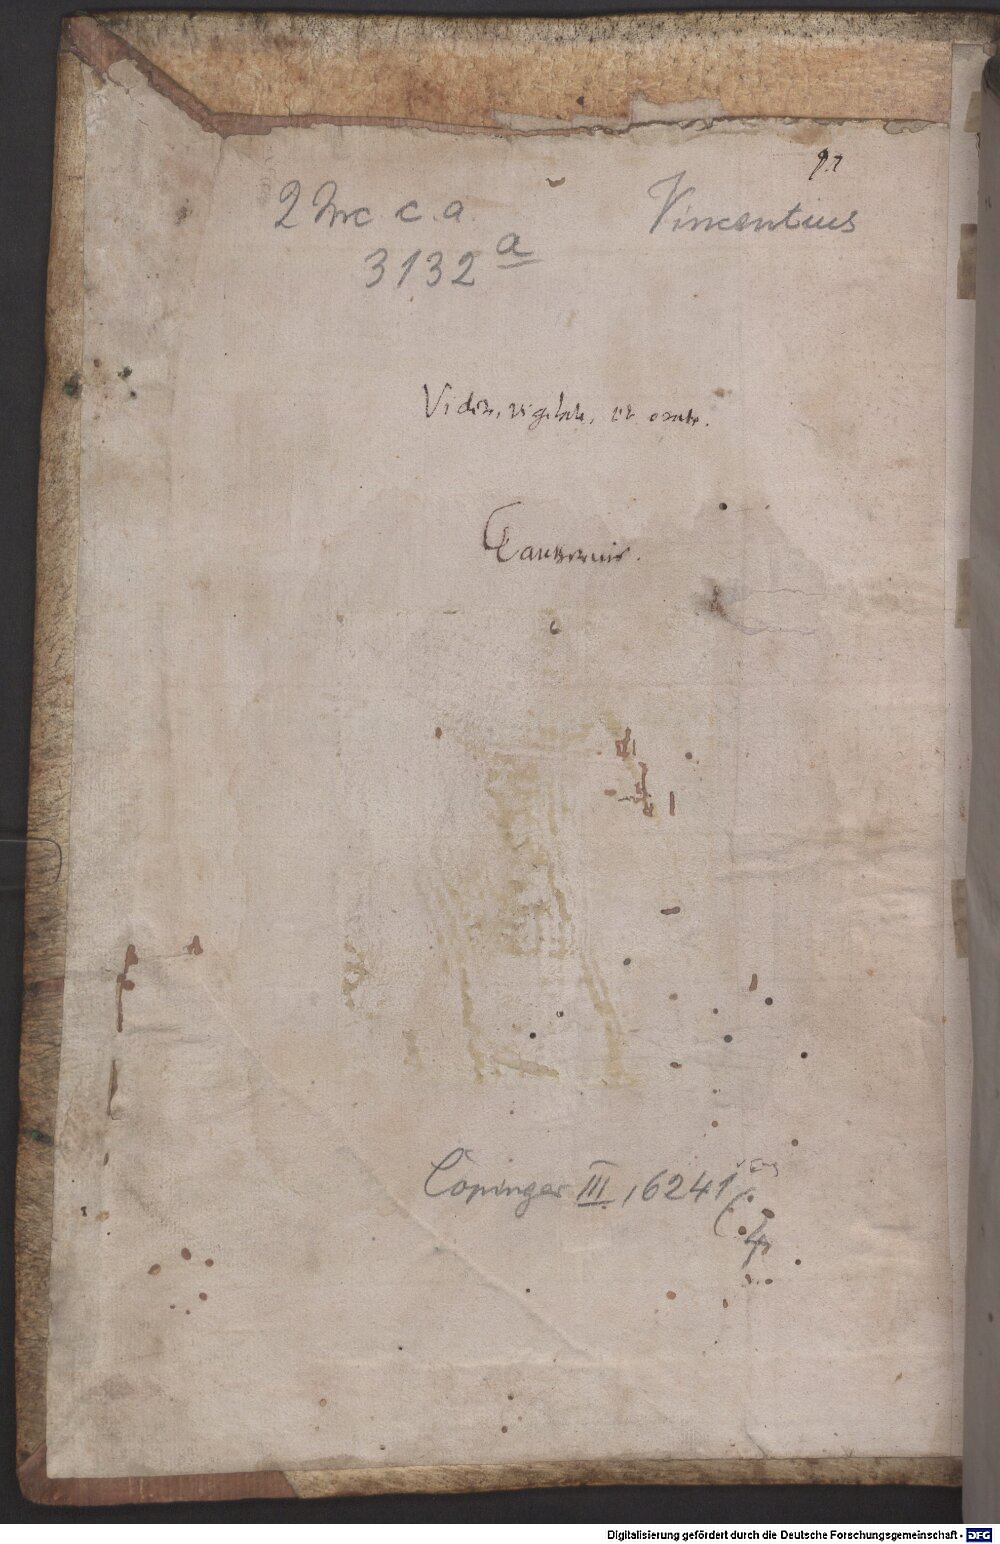 2 Inc. c. a.
3132 a
Vincentius
Videte, vigilate, et orate.
Copinger III, 6241
Digitalisierung gefördert durch die Deutsche Forschungsgemeinschaft - DFG